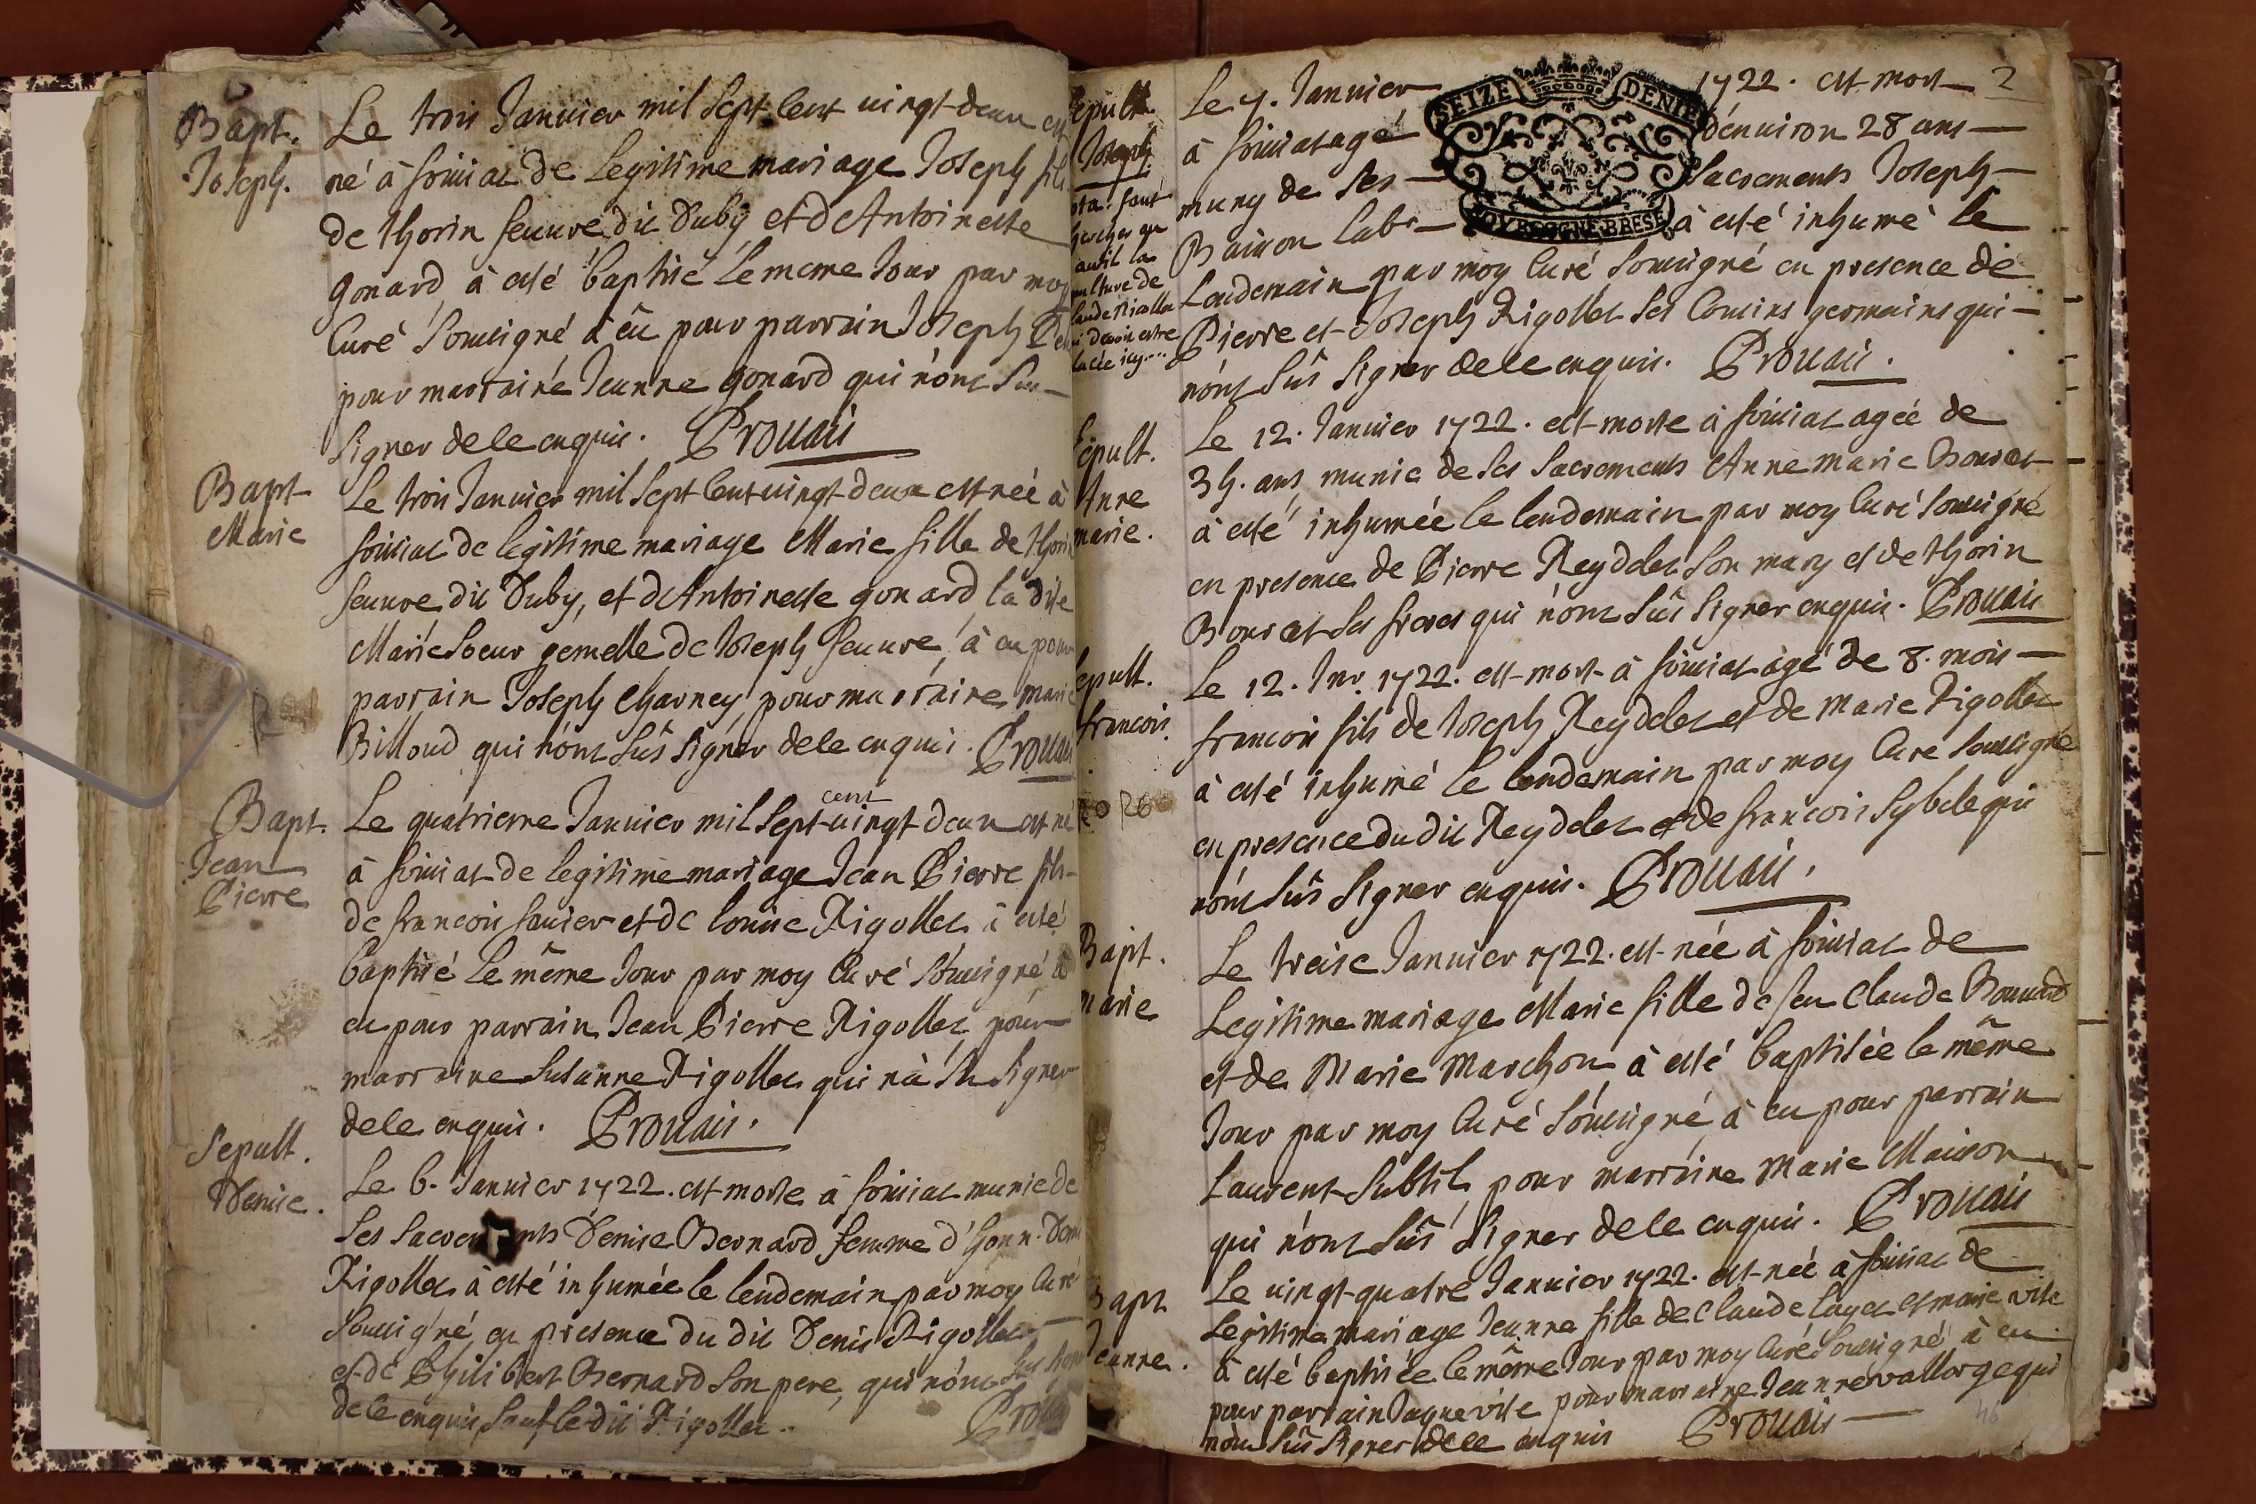 Bapt.
Joseph.
Le trois Januier mil sept cent uingt-deux est
né à soüiat de Legitime mariage Joseph fils
de thorin feuure dit Duby et dAntoinette
gonard, à esté baptisé le meme Jour par moy
Curé Soussigné à eü pour parrain Joseph
pour marraine Jeanne gonard qui n'ont Sus
signer de le enquis. Prouais
Bapt
Marie
Le trois Januier mil sept cent uingt-deux est née à
soüiat de legitime mariage Marie fille de thorin
feuure dit Duby, et dAntoinette gonard la dite
Marie soeur gemelle de Joseph feuure, à eu pour
parrain Joseph Charney pour marraine Marie
Billoud qui n'ont sus signer de le enquis. Prouais
Bapt.
Jean
Pierre
Le quatrieme Januier mil sept cent uingt deux est né
à soüiat de legitime mariage Jean Pierre fils
de francois fauier et de Louise Rigollet à esté
baptisé le même Jour par moy Curé soussigné à
eu pour parrain Jean Pierre Rigollet, pour
marraine Susanne Rigollet qui n'à sçu signer
de le enquis. Prouais.
Sepult.
Denise.
Le 6. Januier 1722. est morte à soüiat munie de
Ses Sacrements Denise Bernard femme d'honn. Denis
Rigollet à esté inhumée le lendemain par moy Curé
Soussigné en presence du dit Denis Rigollet
et de Philibert Bernard son pere, qui n'ont sus signer
de le enquis sauf le dit Rigollet. Prouais
2
SEIZE DENIE
BOVRGOGNE BRESE
Sepult.
Joseph
nota. faut
chercher
la
sepulture de
Le 7. Januier 1722. est mort
à soüiat agé d'enuiron 28 ans
muny de ses Sacrements Joseph
Bauion labr à esté inhumé le
Lendemain par moy Curé Soussigné en presence de
Pierre et Joseph Rigollet ses Cousins germains qui
n'ont sus signer de le enquis. Prouais.
Sepult.
Anne
marie.
Le 12. Januier 1722. est morte à soüiat agée de
34. ans munie de ses sacrements Anne marie Bouret
à esté inhumée le lendemain par moy Curé Soussigné
en presence de Pierre Reydelet son mary et de thorin
Bouret ses freres qui n'ont sus signer enquis. Prouais
Sepult.
francois.
Le 12. Jnr. 1722. est mort à soüiat agé de 8. mois
francois fils de Joseph Reydelet et de Marie Rigollet
à esté inhumé le lendemain par moy Curé Soussigné
en presence du dit Reydelet et de francois Sybele qui
n'ont sus signer enquis. Prouais.
Bapt.
Marie
Le treise Januier 1722. est née à soüiat de
Legitime mariage Marie fille de feu Claude Bouuard
et de Marie Marchon à esté baptisée le même
Jour par moy Curé Soussigné, à eu pour parrain
Laurent Subtil, pour marraine Marie Mairon
qui n'ont sus signer de le enquis. Prouais
Bapt
Jeanne.
Le uingt-quatre Januier 1722. est née à soüiat de
Legitime mariage Jeanne fille de Claude Layet et marie vite
à esté baptisée le même Jour par moy Curé Soussigné à eu
pour parrain Jaque vite pour marraine Jeanne vallorge qui
n'ont sus signer de le enquis Prouais